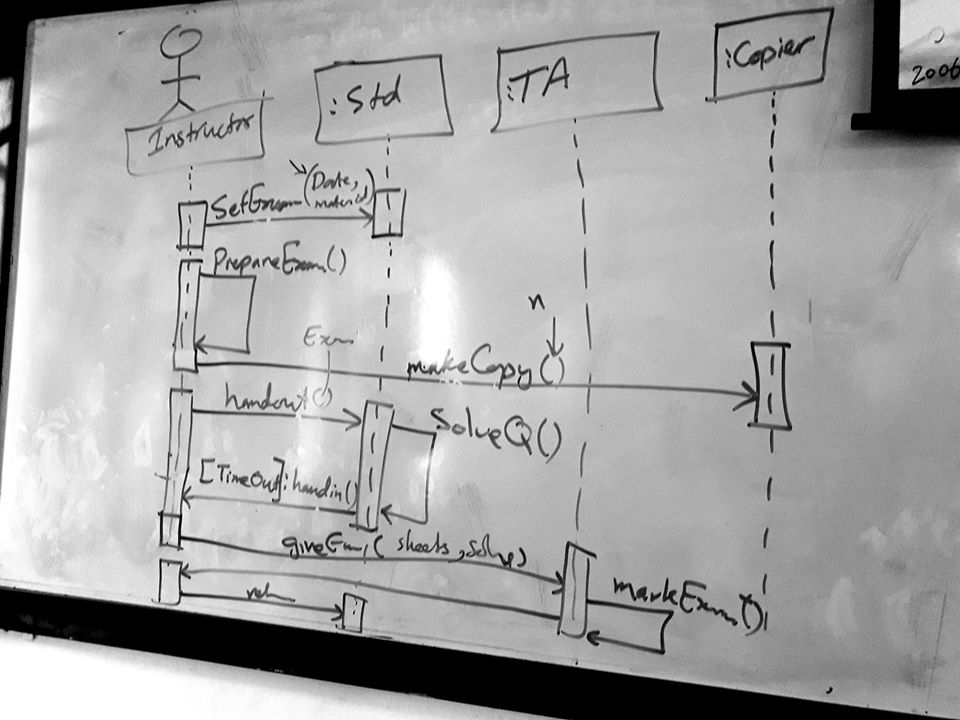 Instructor
:Std
:TA
:Copier
2006
SetExam (Date,
material)
PrepareExam()
n
Exam
makeCopy()
handout()
SolveQ()
[TimeOut]:handin()
giveExam(sheets, Solve)
markExam()